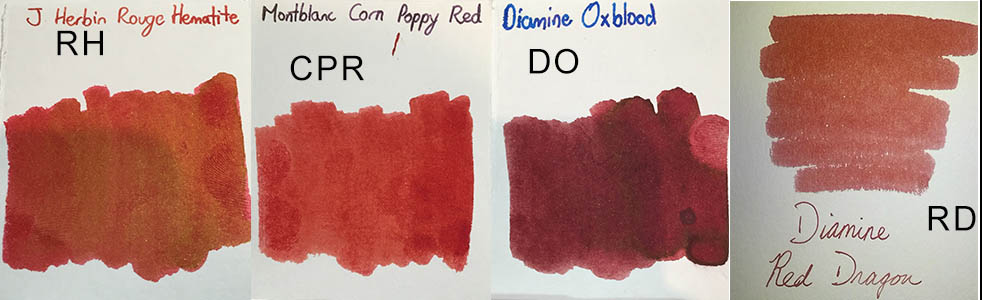 J Herbin Rouge Hematite
RH
Montblanc Corn Poppy Red
CPR
Diamine Oxblood
DO
Diamine
Red Dragon
RD